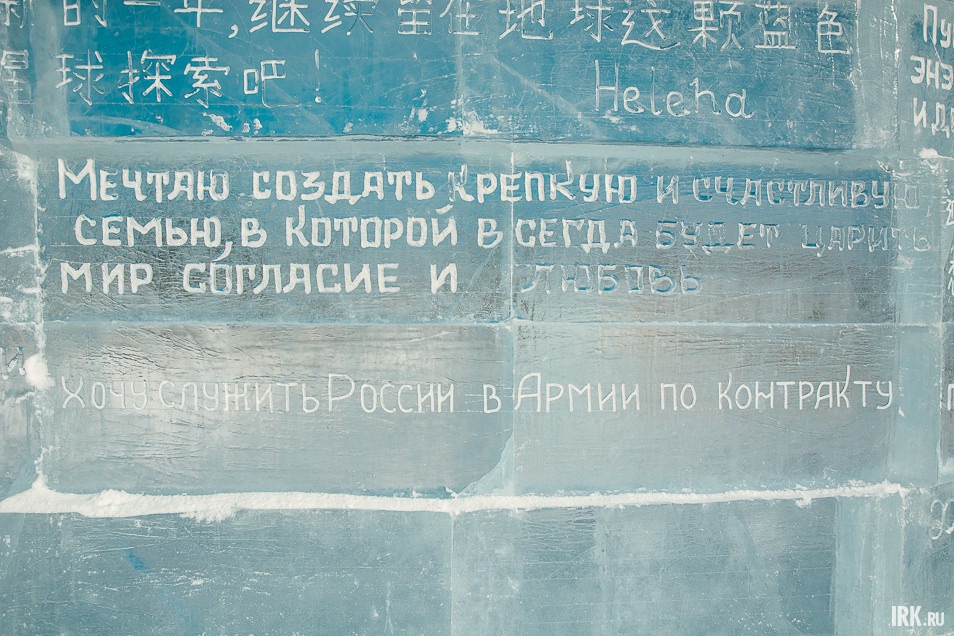 新的一年,继续留在地球这颗蓝色
星球探索吧!
Helena
Мечтаю создать крепкую и счастливую
семью, в которой всегда будет царить
мир согласие и любовь
Хочу служить России в Армии по контракту
IRK.RU